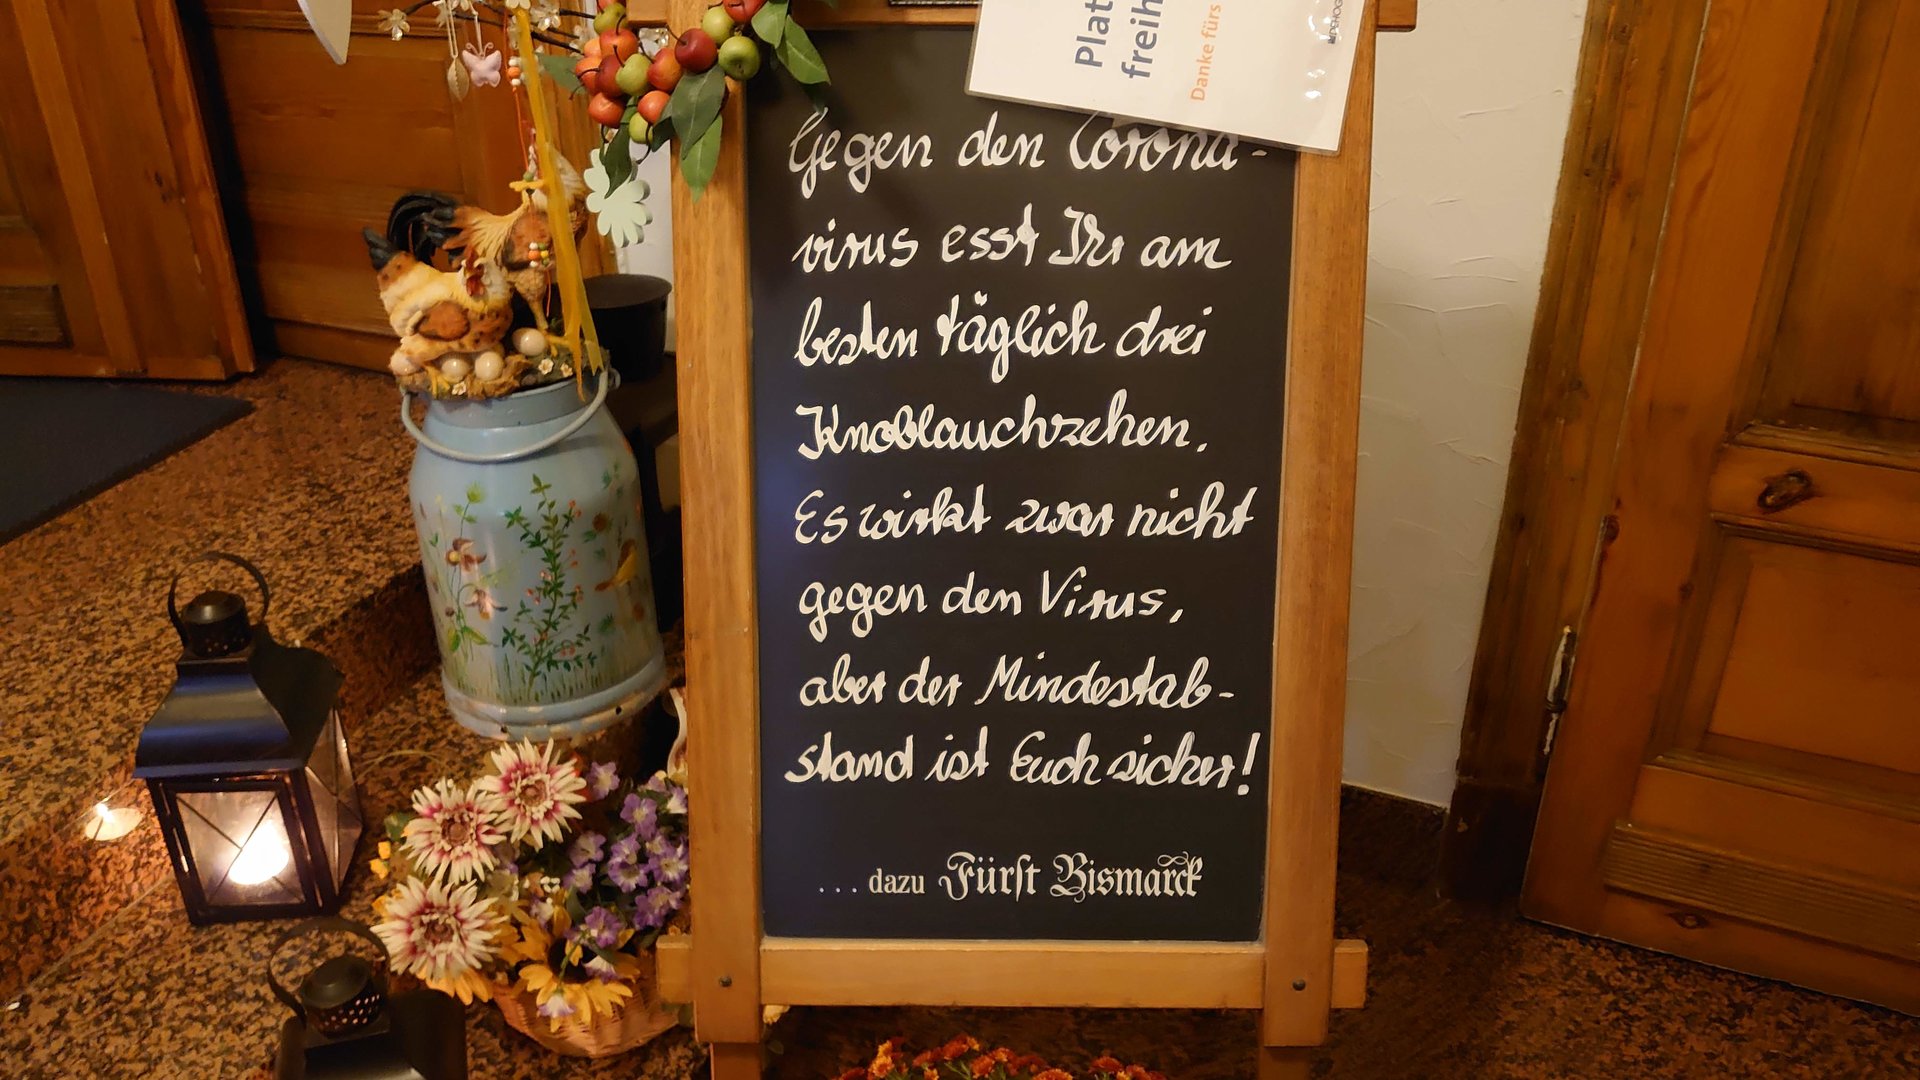 Plat
freih
Danke fürs
Gegen den Corona-
virus esst Ihr am
besten täglich drei
Knoblauchzehen.
Es wirkt zwar nicht
gegen den Virus,
aber der Mindestab-
stand ist Euch sicher!
... dazu Fürst Bismarck